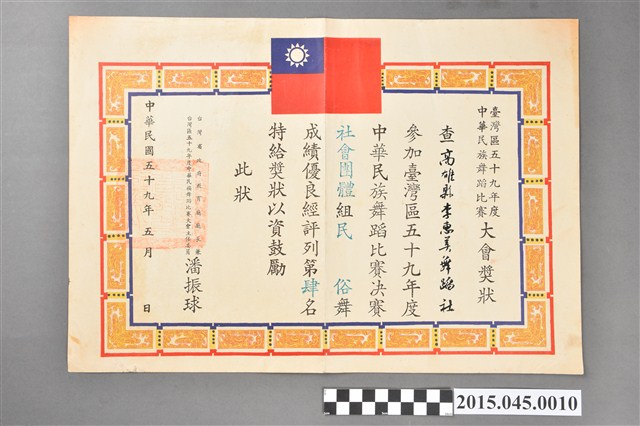 臺灣區五十九年度
中華民族舞蹈比賽
大會獎狀
查高雄縣李惠美舞蹈社
參加臺灣區五十九年度
中華民族舞蹈比賽決賽
社會團體組民俗舞
成績優良經評列第肆名
特給獎狀以資鼓勵
此狀
台灣省政府教育廳廳長兼
台灣區五十九年度中華民族舞蹈比賽大會主任委員
潘振球
中華民國五十九年五月日
2015.045.0010